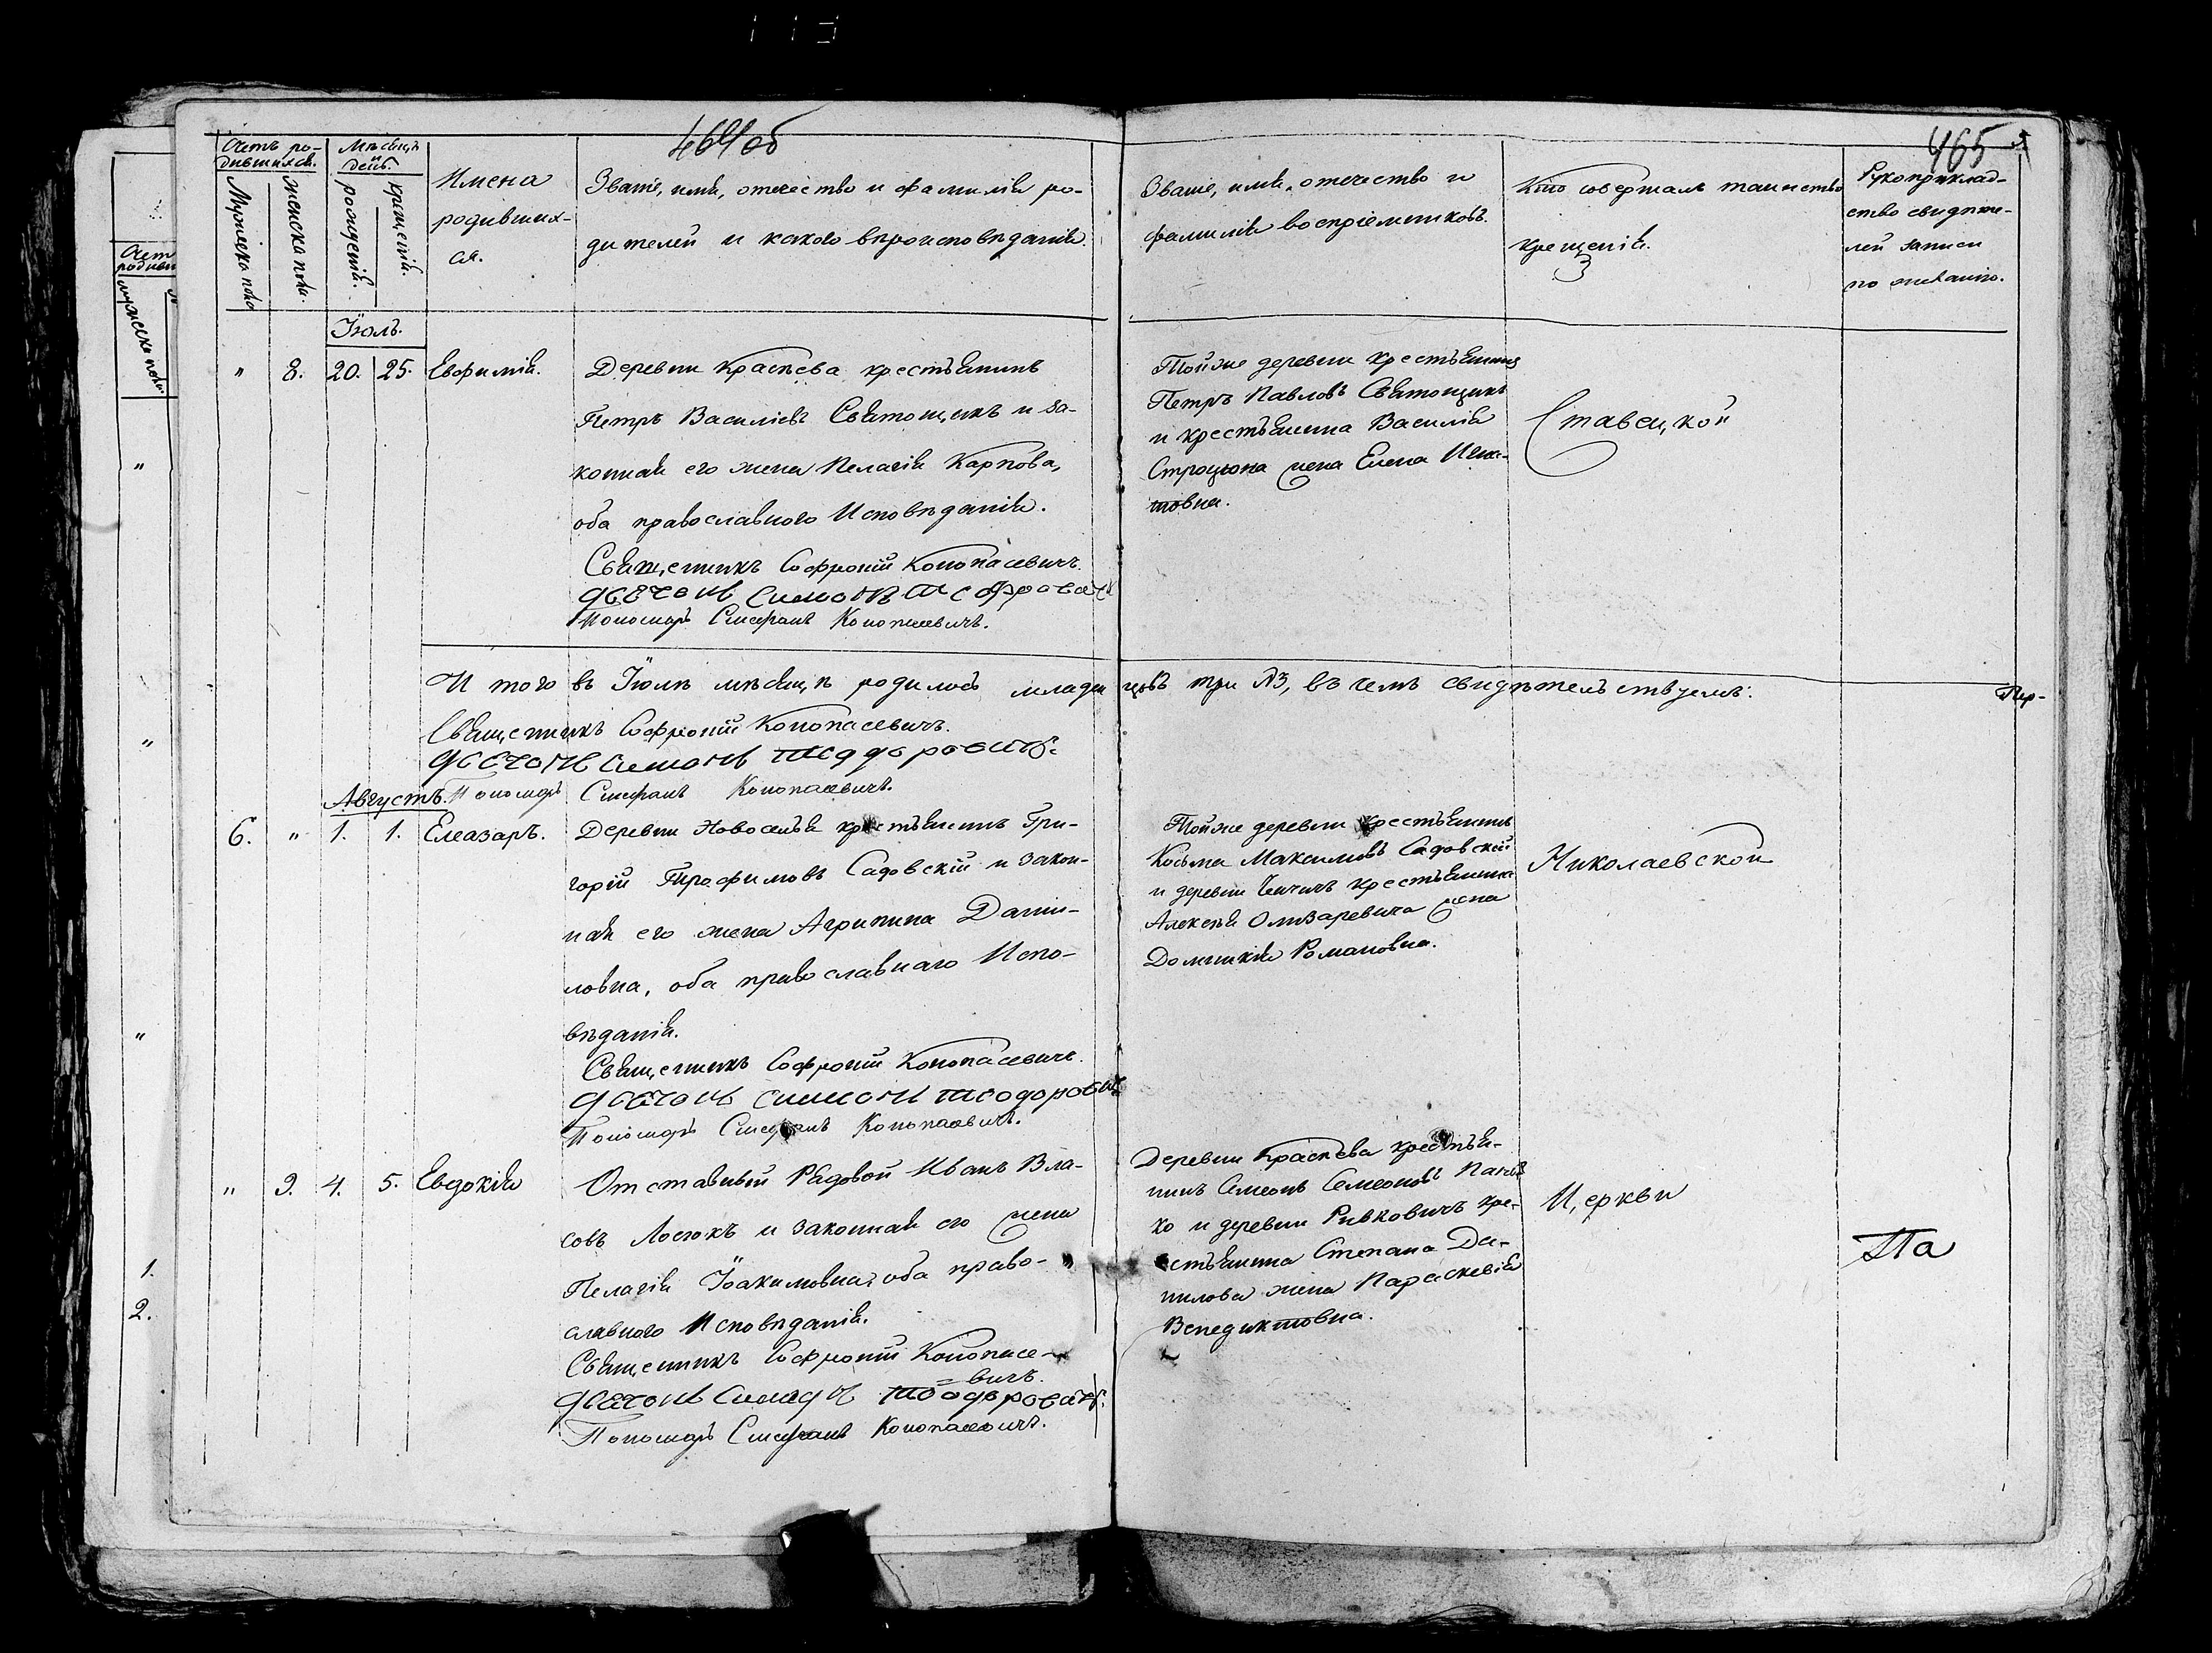 464об
465
Счетъ ро-
дившихся.
Мѣсяцъ
день.
Мужеска пола
Женска пола.
рожденія.
крещенія.
Имена
родивших-
ся.
Званіе, имя, отечество и фамилія ро-
дителей и какого вѣроисповѣданія.
Званіе, имя, отечество и
фамилія воспріемниковъ.
Кто совершалъ таинство
крещенія.
3
Рукоприклад-
ство свидѣте-
лей записи
по желанію.
Іюль.
" 8. 20. 25. Евфимія.
Деревни Краснева крестьянинъ
Петръ Василіевъ Святощикъ и за-
конная его жена Пелагія Карпова,
оба православного Исповѣданія.
Священникъ Софроній Конопасевичъ.
дьячокъ Симонъ
Пономарь Стефанъ Конопасевичъ.
Тойже деревни крестьянинъ
Петръ Павловъ Святощикъ
и крестьянина Василія
жена Елена Игна-
товна.
Ставецкой
И того въ Іюлѣ мѣсяцѣ родилось младенцовъ три №3, въ чемъ свидѣтельствуемъ:
Пер-
Священникъ Софроній Конопасевичъ.
дьячокъ Симонъ Теодоровичъ.
Августъ.
Пономарь Стефанъ Конопасевичъ.
6. " 1. 1. Елеазаръ.
Деревни Новоселья крестьянинъ Гри-
горій Трофимовъ Садовскій и закон-
ная его жена Агрипина Дани-
ловна, оба православнаго Испо-
вѣданія.
Священникъ Софроній Конопасевичъ.
дьячокъ Симонъ Теодоровичъ
Пономарь Стефанъ Конопасевичъ.
Тойже деревни крестьянинъ
Косьма Максимовъ Садовскій
и деревни крестьянина
Алексѣя Олизаревича жена
Домникія Романовна.
Николаевской
" 9. 4. 5. Евдокія
Отставный Рядовой Иванъ Вла-
совъ Лосюкъ и законная его жена
Пелагія Іоакимовна, оба право-
славного Исповѣданія.
Священникъ Софроній Конопасе-
=вичъ.
дьячокъ Симонъ Теодоровичъ.
Пономарь Стефанъ Конопасевичъ.
Деревни Краснева крестья-
нинъ Семеонъ Семеоновъ
ко и деревни Ривковичъ кре-
стьянина Степана Да-
нилова жена Параскевія
Венедиктовна.
Церкви
Па
1.
2.